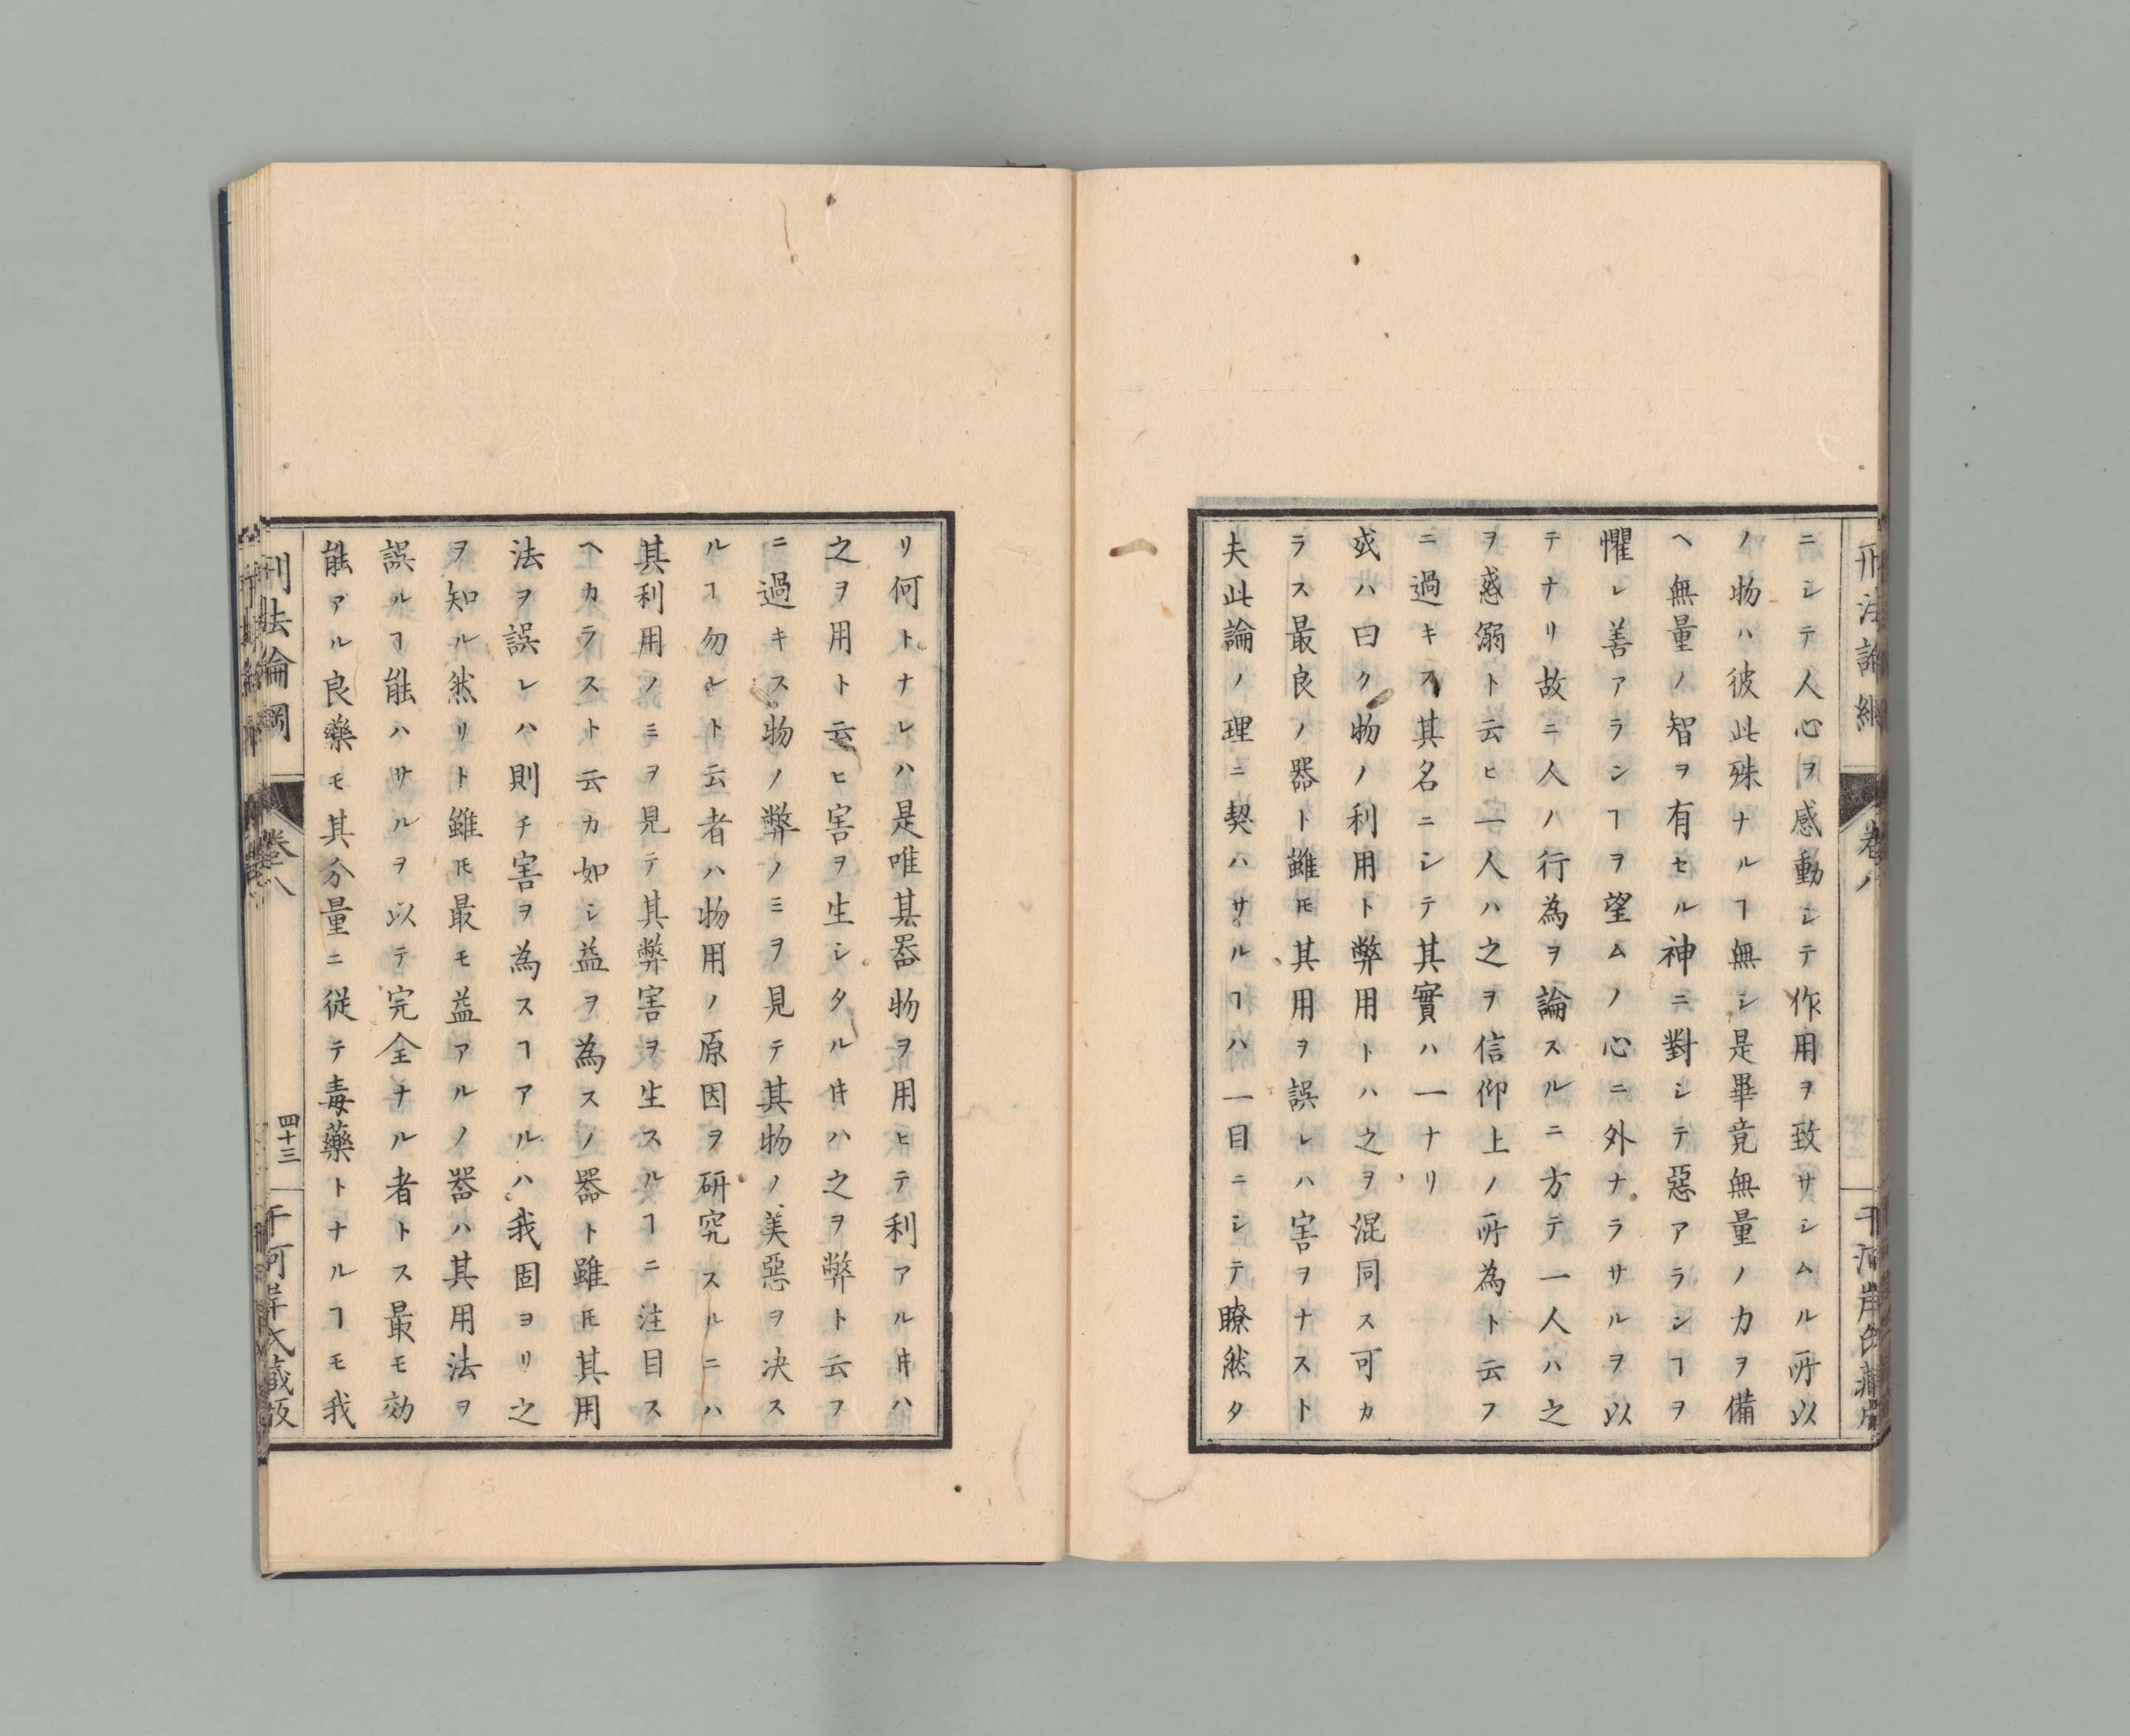 ニシテ人心ヲ感動シテ作用ヲ致サシムル所以
ノ物ハ彼此殊ナルヿ無シ是畢竟無量ノ力ヲ備
ヘ無量ノ智ヲ有セル神ニ對シテ惡アラシヿヲ
懼レ善アラシヿヲ望ムノ心ニ外ナラサルヲ以
テナリ故ニ人ノ行為ヲ論スルニ方テ一人ハ之
ヲ惑溺ト云ヒ一人ハ之ヲ信仰上ノ所為ト云フ
ニ過キス其名ニシテ其實ハ一ナリ
或ハ曰ク物ノ利用ト弊用トハ之ヲ混同ス可カ
ラス最良ノ器ト雖𪜈其用ヲ誤レハ害ヲナスト
夫此論ノ理ニ契ハサルヿハ一目ニシテ瞭然タ
刑法論綱
卷八
リ何トナレハ是唯其器物ヲ用ヒテ利アル𬼀ハ
之ヲ用ト云ヒ害ヲ生シタル𬼀ハ之ヲ弊ト云フ
ニ過キス物ノ弊ノミヲ見テ其物ノ美惡ヲ决ス
ルヿ勿レト云者ハ物用ノ原因ヲ研究スルニハ
其利用ノミヲ見テ其弊害ヲ生スルヿニ注目ス
ヘカラスト云カ如シ益ヲ為スノ器ト雖𪜈其用
法ヲ誤レハ則チ害ヲ為スヿアルハ我固ヨリ之
ヲ知ル然リト雖𪜈最モ益アルノ器ハ其用法ヲ
誤ルヿ能ハサルヲ以テ完全ナル者トス最モ効
能アル良藥モ其分量ニ從テ毒藥トナルヿモ我
刑法論綱
卷八
四十三